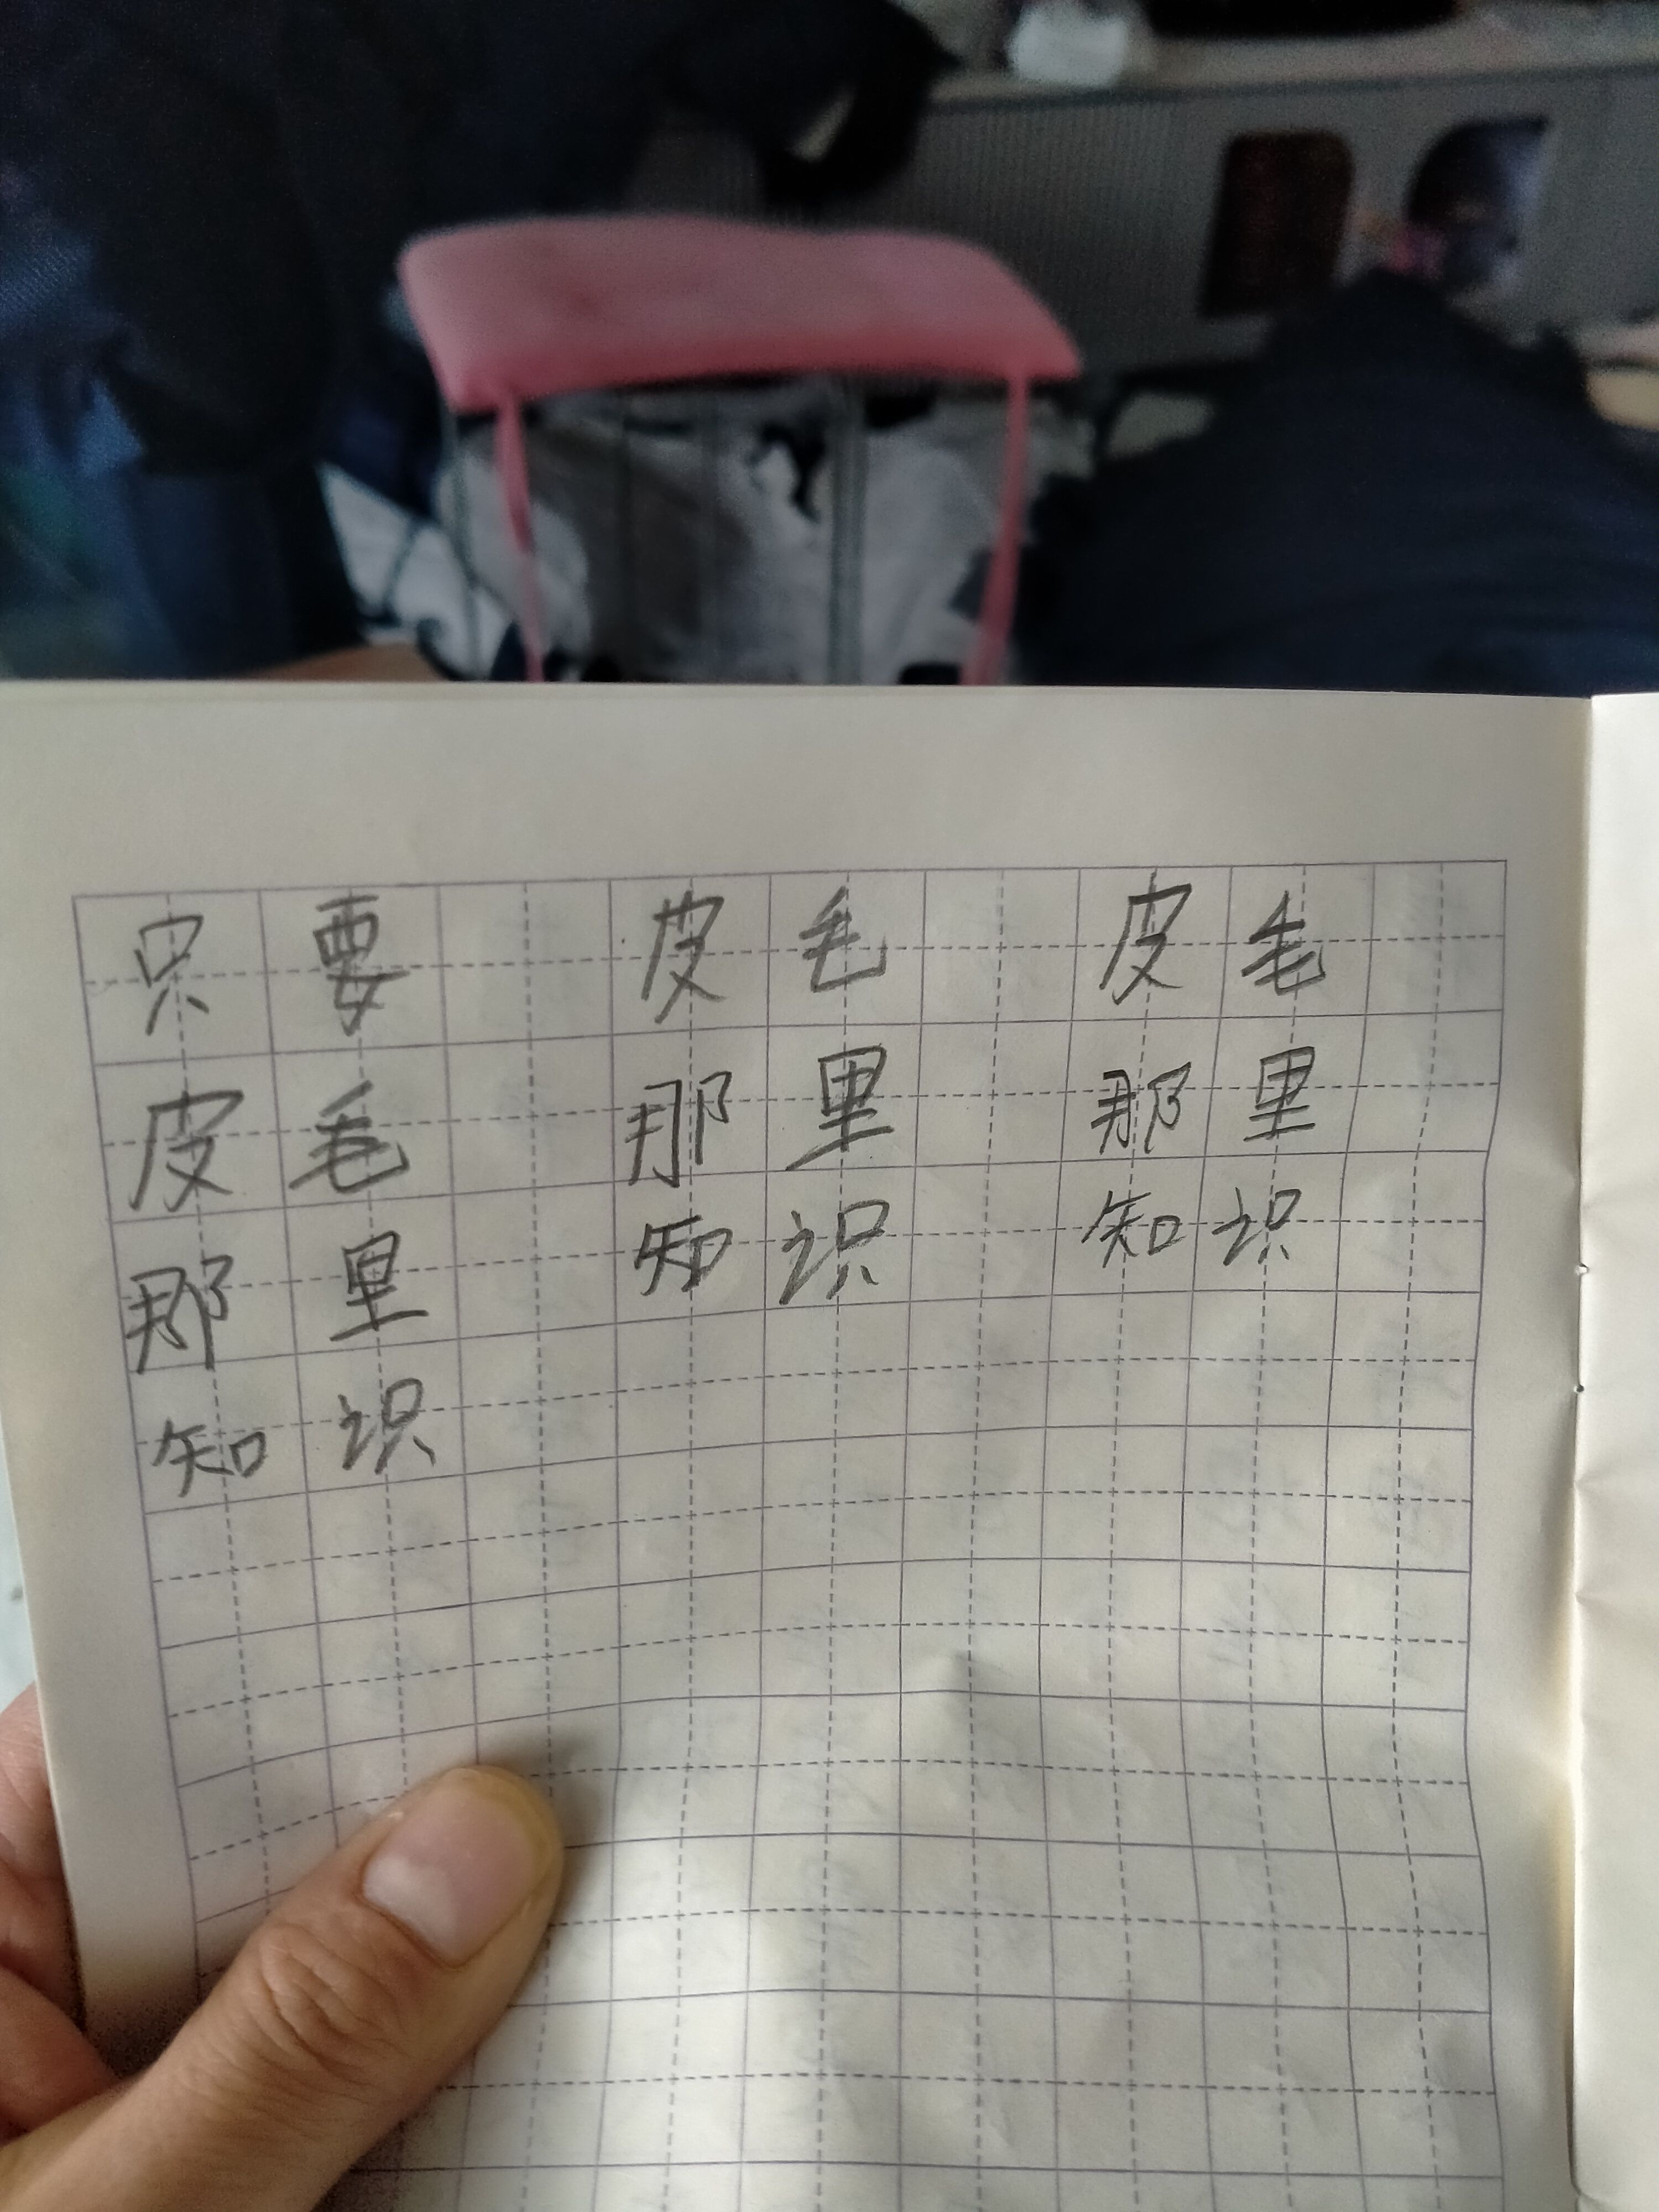 只要 皮毛 皮毛
皮毛 那里 那里
那里 知识 知识
知识